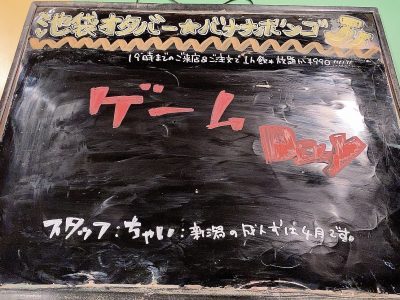 池袋オタバー★バナナボンゴ
19時までのご来店&ご注文で1h飲み放題が¥990!!!!!
ゲーム
DAY
スタッフ:ちゃい:新潟のばんずは4月です。